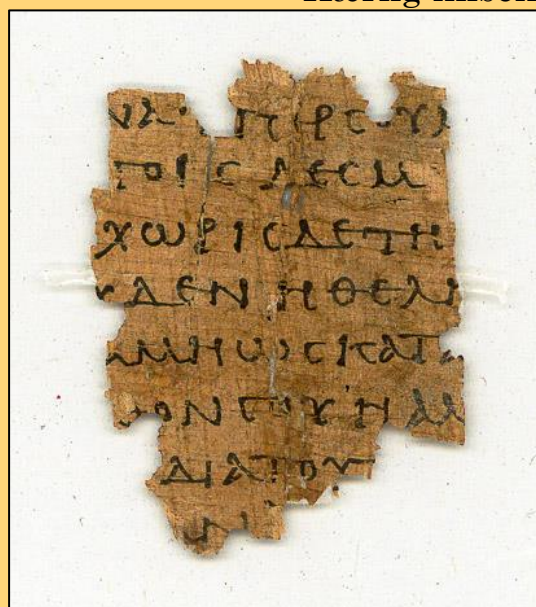 ΝΑ ΥΠΕΡ ΣΟΥ Δ
ΤΟΙΣ ΔΕΣΜ
ΧΩΡΙΣ ΔΕ ΤΗ
ΥΔΕΝ ΗΘΕΛΗ
Α ΜΗ ΩΣ ΚΑΤΑ
ΘΟΝ ΣΟΥ Η ΑΛ
ΔΙΑ ΤΟΥ